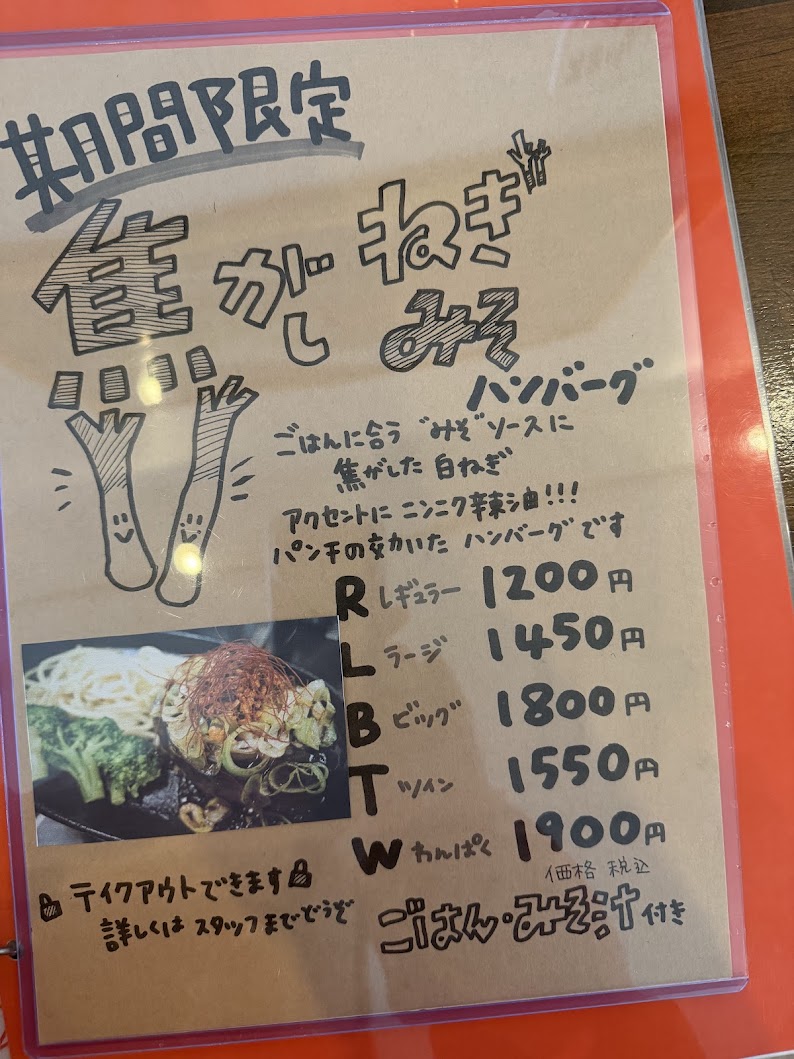 期間限定
焦がしねぎ
みそ
ハンバーグ
ごはんに合う "みそ"ソースに
焦がした 白ねぎ
アクセントに ニンニク辣油!!!
パンチの効いた ハンバーグです
R レギュラー 1200円
L ラージ 1450円
B ビッグ 1800円
T ツイン 1550円
W わんぱく 1900円
価格 税込
ごはん・みそ汁付き
テイクアウトできます
詳しくは スタッフまでどうぞ